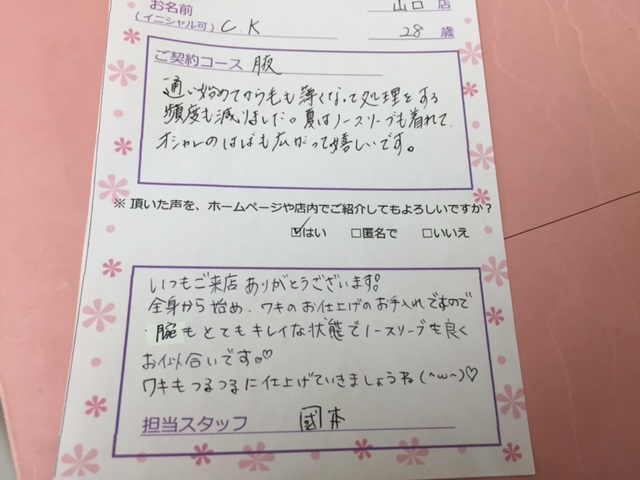 お名前
(イニシャル可) C K
山口 店
28 歳
ご契約コース 腋
通い始めてから毛も薄くなって処理をする
頻度も減りました。夏はノースリーブも着れて、
オシャレのはばも広がって嬉しいです。
※ 頂いた声を、ホームページや店内でご紹介してもよろしいですか?
☑はい □匿名で □いいえ
いつもご来店ありがとうございます!
全身から始め、ワキのお仕上げのお手入れですので
腕もとてもキレイな状態でノースリーブも良く
お似合いです。♡
ワキもつるつるに仕上げていきましょうね(^ω~)♡
担当スタッフ 國本